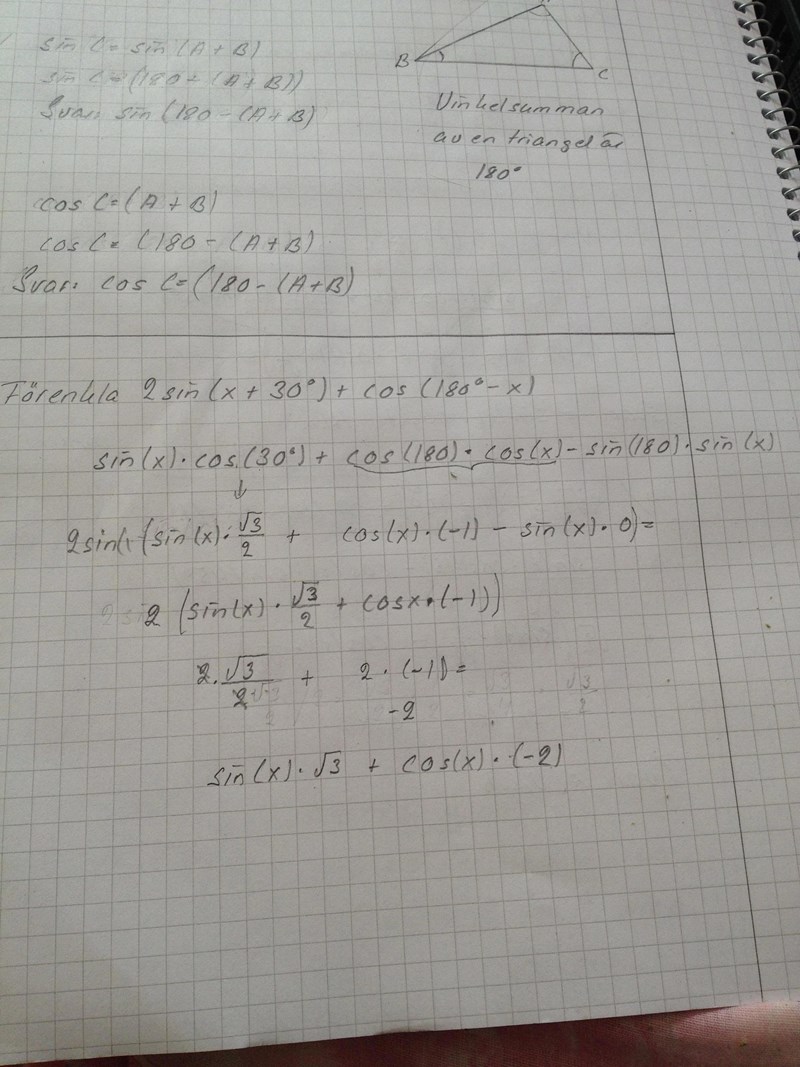 sin C = sin (A + B)
sin C = (180 - (A + B))
Svar: sin (180 - (A + B)
B
C
Vinkelsumman
av en triangel är
180°
cos C = (A + B)
cos C = (180 - (A + B)
Svar: cos C = (180 - (A+B)
Förenkla 2 sin (x + 30°) + cos (180° - x)
sin(x) · cos (30°) + cos(180) · cos(x) - sin(180) · sin(x)
↓
(sin(x) · √3/2 + cos(x) · (-1) - sin(x) · 0) =
2 (sin(x) · √3/2 + cosx · (-1))
2 · √3/2 + 2 · (-1) =
-2
sin(x) · √3 + cos(x) · (-2)